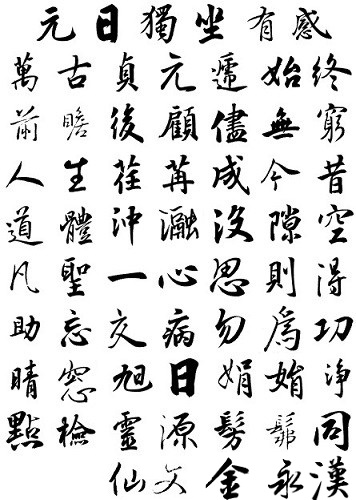 元日獨坐有感
萬古貞元遞始終
前瞻後顧儘無窮
人生荏苒成今昔
道體沖瀜沒隙空
凡聖一心思則得
助忘交病勿爲功
晴窓旭日娟娟淨
點檢靈源髣髴同
仙文金永漢